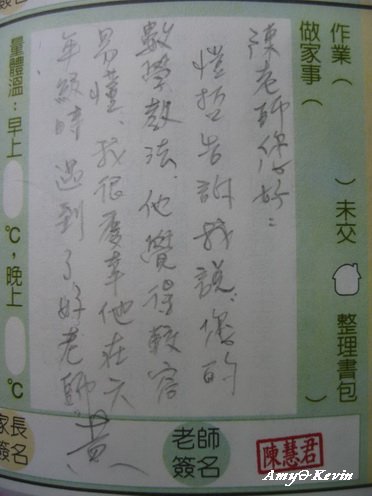 作業（　　　）未交
做家事（　　　）
整理書包
陳老師你好：
愷哲告訴我說、您的
數學教法、他覺得較容
易懂、我很慶幸他在六
年級時遇到了好老師
黃
量體溫：早上　℃，晚上　℃
家長
簽名
老師
簽名
陳慧君
Amy∂Kevin